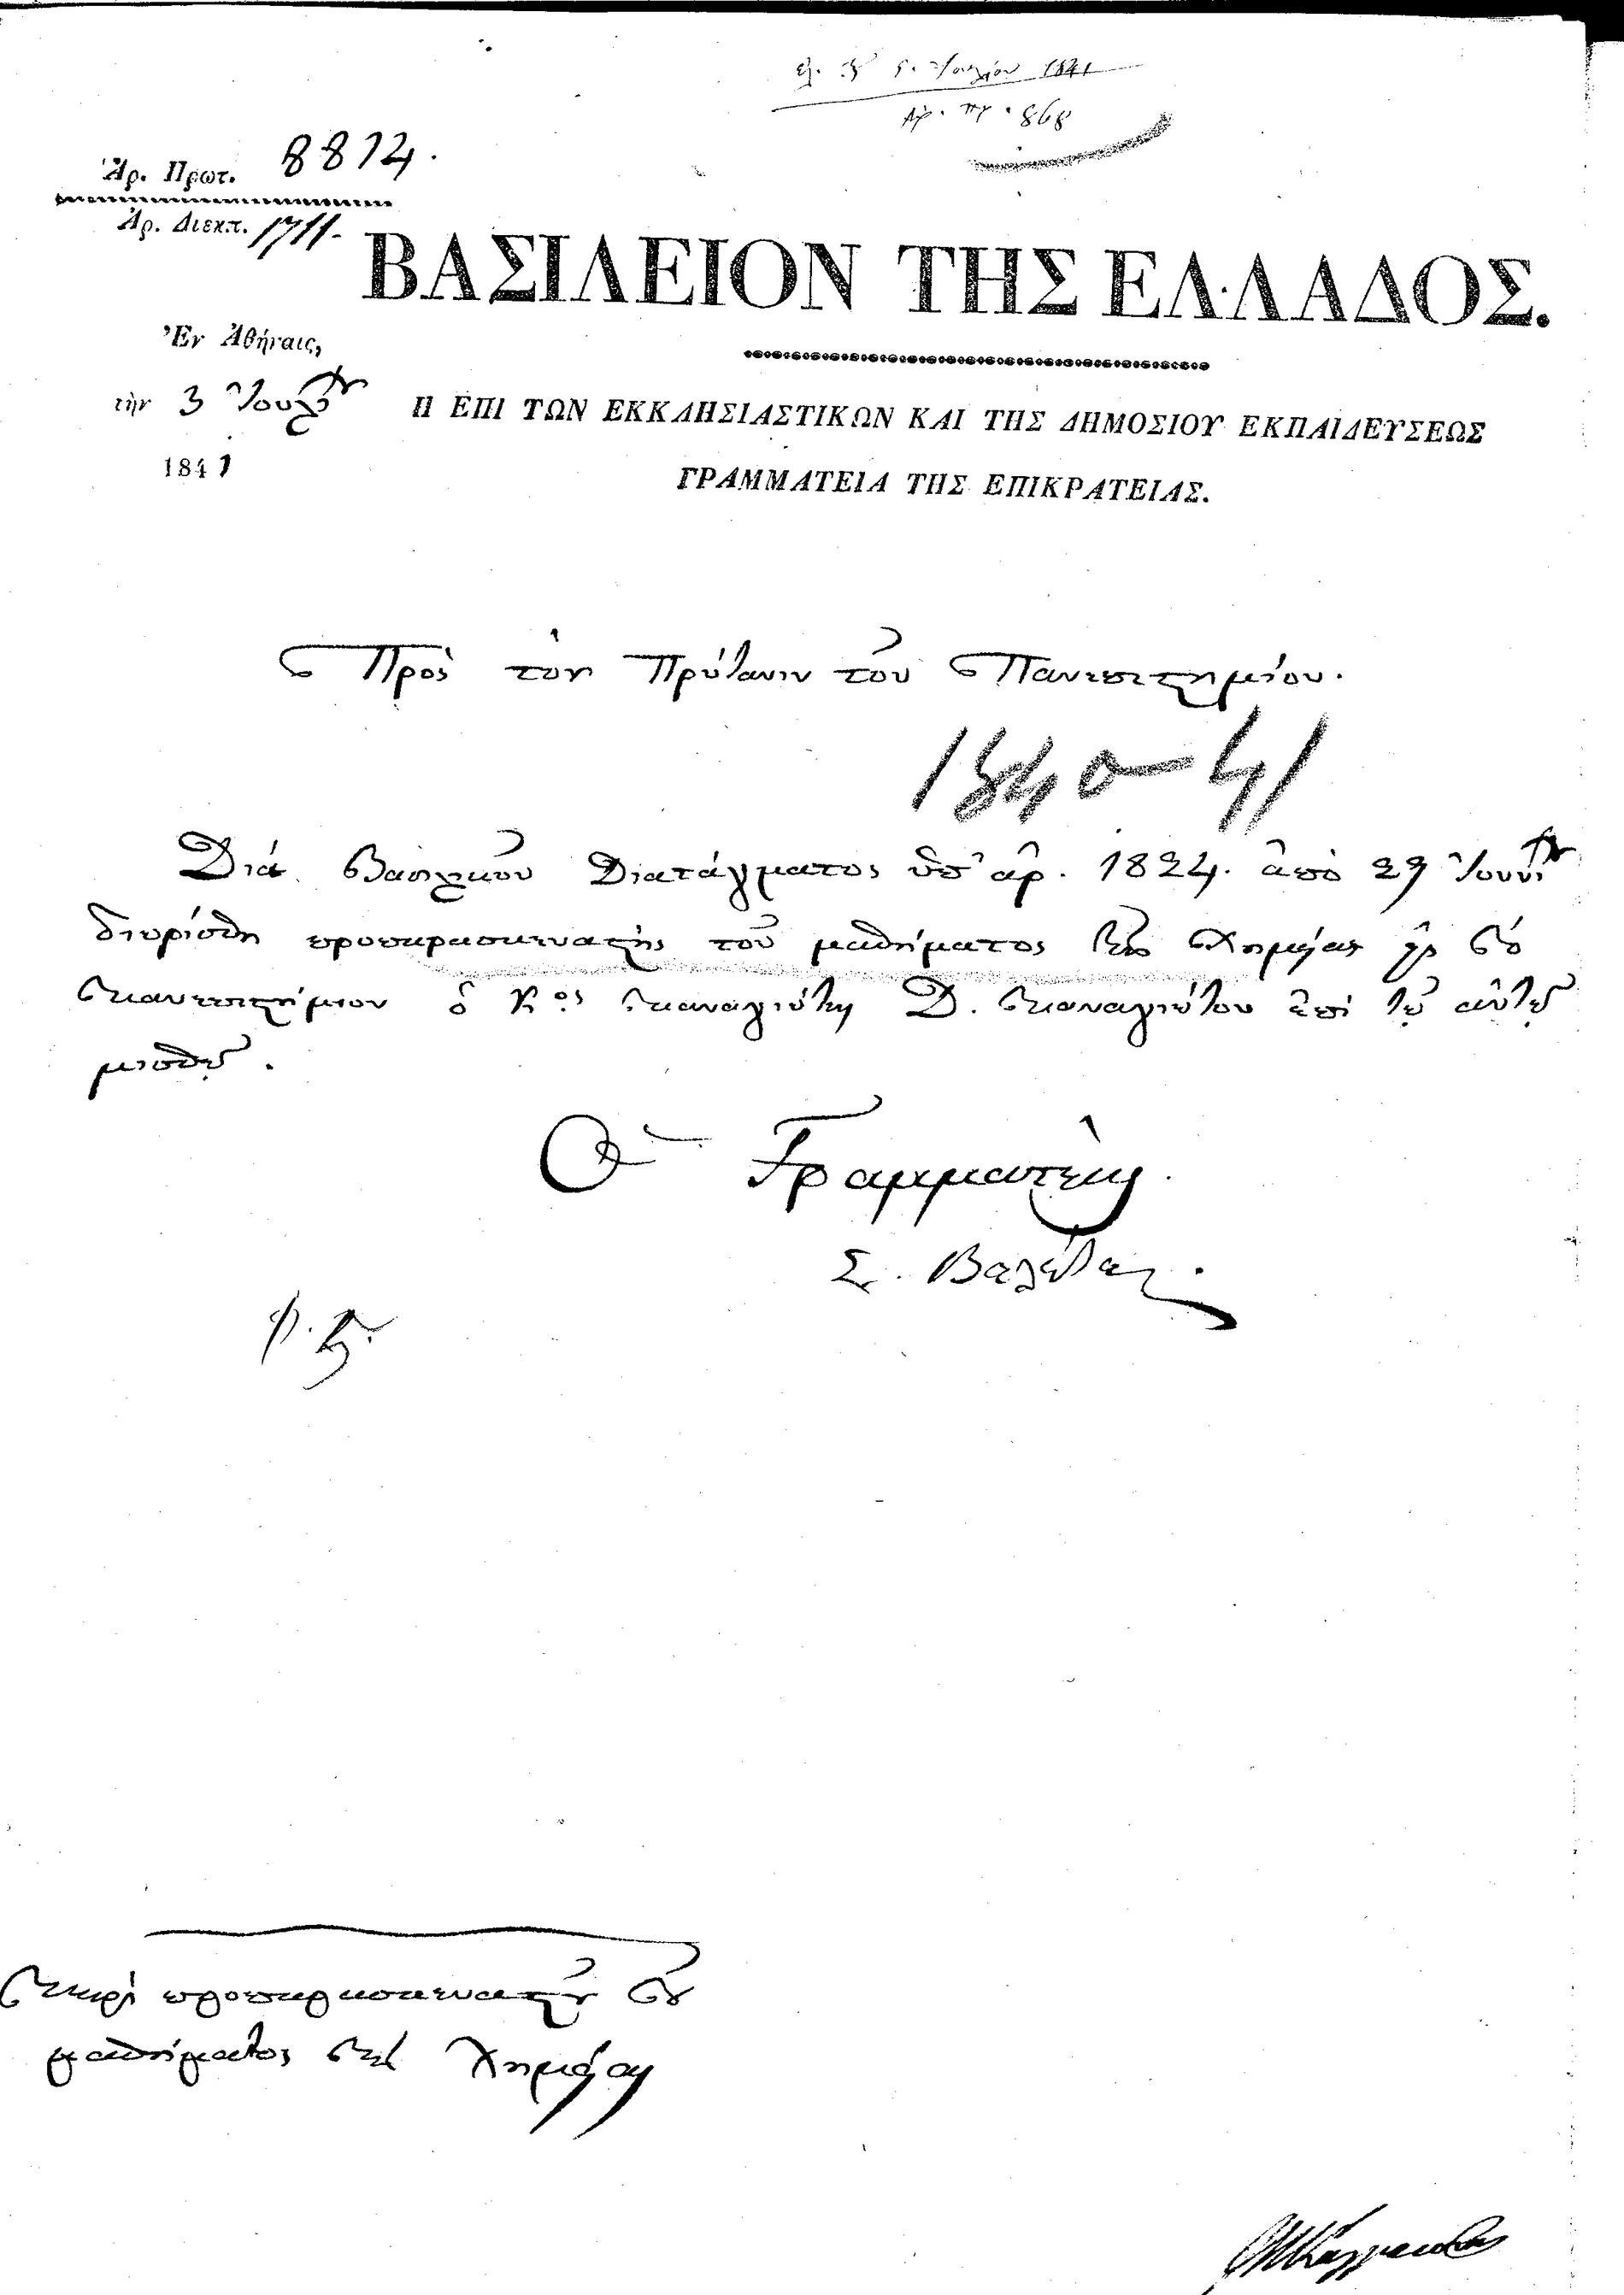 ἐλ. τῇ 5. Ἰουλίου 1841
Ἀρ. πρ. 868
Ἀρ. Πρωτ. 8814.
Ἀρ. Διεκπ. 1711.
ΒΑΣΙΛΕΙΟΝ ΤΗΣ ΕΛΛΑΔΟΣ.
Ἐν Ἀθήναις,
τὴν 3 Ἰουλίου
1841
Η ΕΠΙ ΤΩΝ ΕΚΚΛΗΣΙΑΣΤΙΚΩΝ ΚΑΙ ΤΗΣ ΔΗΜΟΣΙΟΥ ΕΚΠΑΙΔΕΥΣΕΩΣ
ΓΡΑΜΜΑΤΕΙΑ ΤΗΣ ΕΠΙΚΡΑΤΕΙΑΣ.
Πρὸς τὸν Πρύτανιν τοῦ Πανεπιστημίου.
1840-41
Διὰ Βασιλικοῦ Διατάγματος ὑπ' ἀρ. 1824. ἀπὸ 29 Ἰουνίου
διωρίσθη προπαρασκευαστὴς τοῦ μαθήματος τῆς Χημείας εἰς τὸ
Πανεπιστήμιον ὁ Κος Παναγιώτης Δ. Παναγιώτου ἐπὶ τῷ αὐτῷ
μισθῷ.
Ὁ Γραμματεὺς.
Σ. Βαλέτας.
Περὶ προπαρασκευαστοῦ τοῦ
μαθήματος τῆς Χημείας